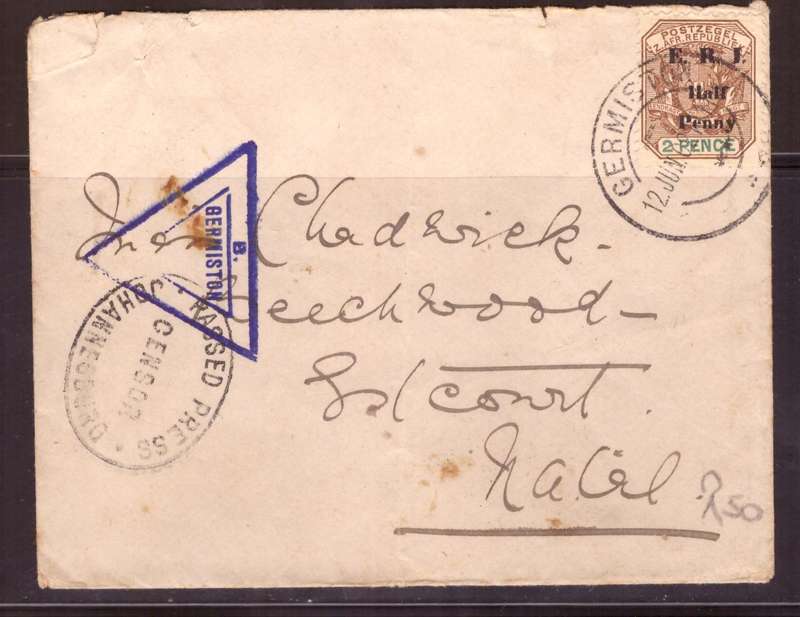 POSTZEGEL
Z. AFR. REPUBLIEK
E. R. I.
Half
Penny
2 PENCE
GERMISTON
12 JUN 0
B.
GERMISTON
PASSED PRESS
CENSOR
JOHANNESBURG
Chadwick
Beechwood
Estcourt.
Natal.
R50